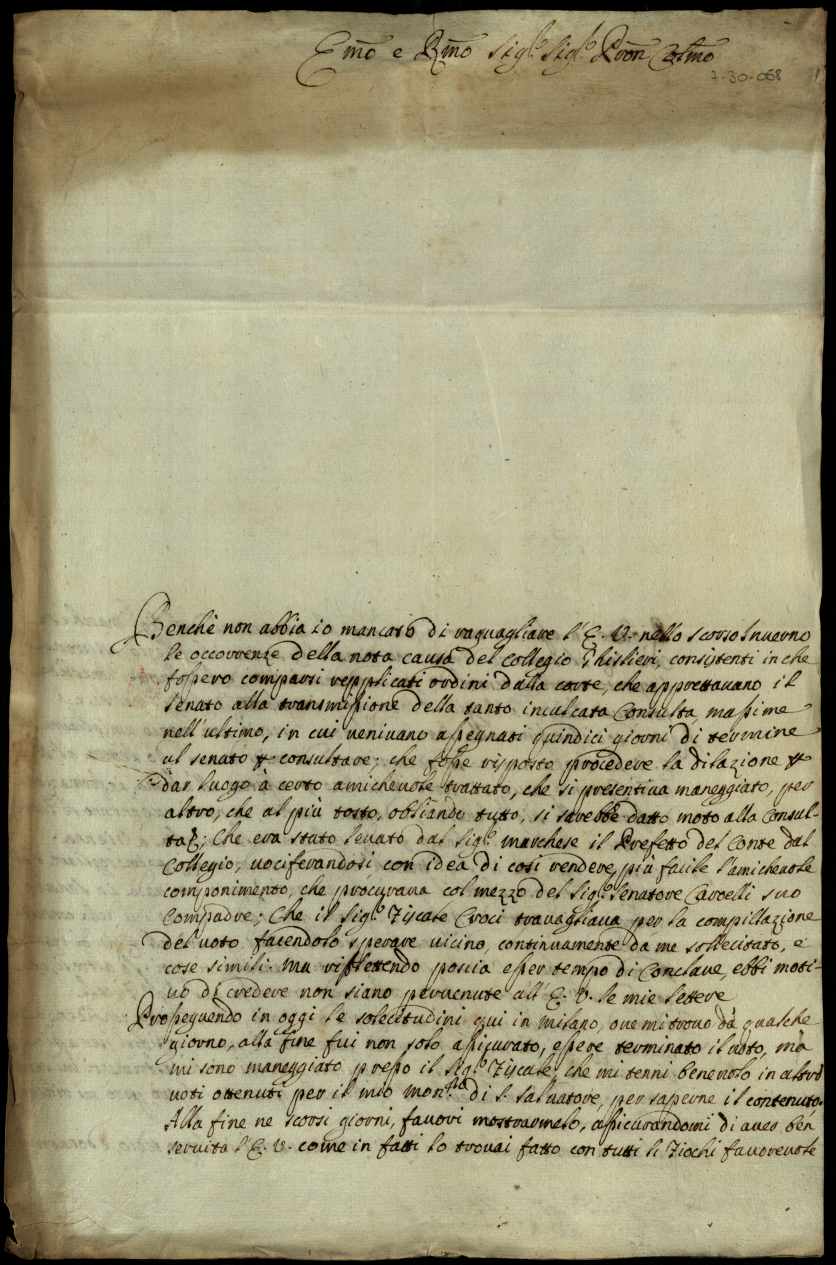 Emõ e Rmõ Sig.r Sig.r Pron Colmõ
7-30-068
Benchè non abbia io mancato di raguagliare l'E. V. nello scorso Inverno
le occorrenze della nota causa del Collegio Ghislieri, consistenti in che
fossero comparsi repplicati ordini dalla corte, che apprettavano il
senato alla transmissione della tanto inculcata Consulta, massime
nell'ultimo, in cui venivano assegnati quindici giorni di termine
al senato p consultare; che fosse risposto procedere la dilazione p
dar luogo à certo amichevole trattato, che si presentiva maneggiato, per
altro, che al più tosto, obliando tutto, si sarebbe datto moto alla Consul-
ta; Che era stato levato dal Sig.r marchese il Prefetto del Conte dal
Collegio, vociferandosi con idea di così rendere più facile l'amichevole
componimento, che procurava col mezzo del Sig.r Senatore Caroelli suo
Compadre; Che il Sig.r Fiscale Croci travagliava per la compillazione
del voto facendolo sperare vicino, continuamente da me sollecitato, e
cose simili. Ma riflettendo poscia esser tempo di Conclave, ebbi moti-
vo di credere non siano pervenute all'E. V. le mie lettere
Proseguendo in oggi le solecitudini qui in Milano, ove mi trovo da qualche
giorno, alla fine fui non solo assicurato, essere terminato il voto, mà
mi sono maneggiato presso il Sig.r Fiscale, che mi tenni benevolo in altri
voti ottenuti per il mio Mon.ro di S. Salvatore, per saperne il contenuto.
Alla fine ne scorsi giorni, favorì mostrarmelo, assicurandomi di aver ben
servita l'E. V. come in fatti lo trovai fatto con tutti li Fiochi favorevole